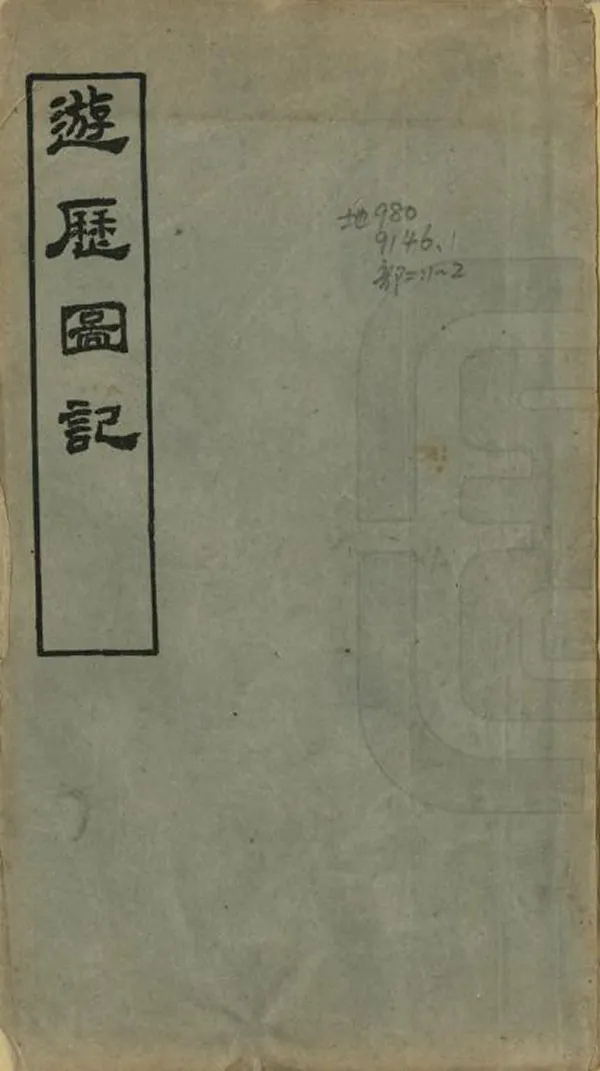 遊歷圖記
地980
9146.1
部二:1~2